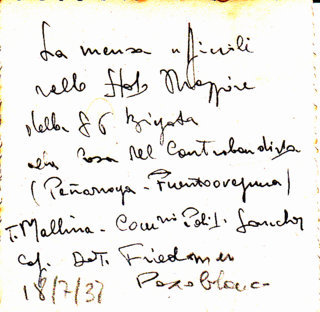 La mensa ufficiali
nello Stato Maggiore
della 86 Brigata
alla Casa del Contrabandista
(Peñarroya - Fuenteovejuna)
T. Mallina - Comm Polit. Sandor
Cap. Dott. Friedman
18/7/37 Pozoblanco